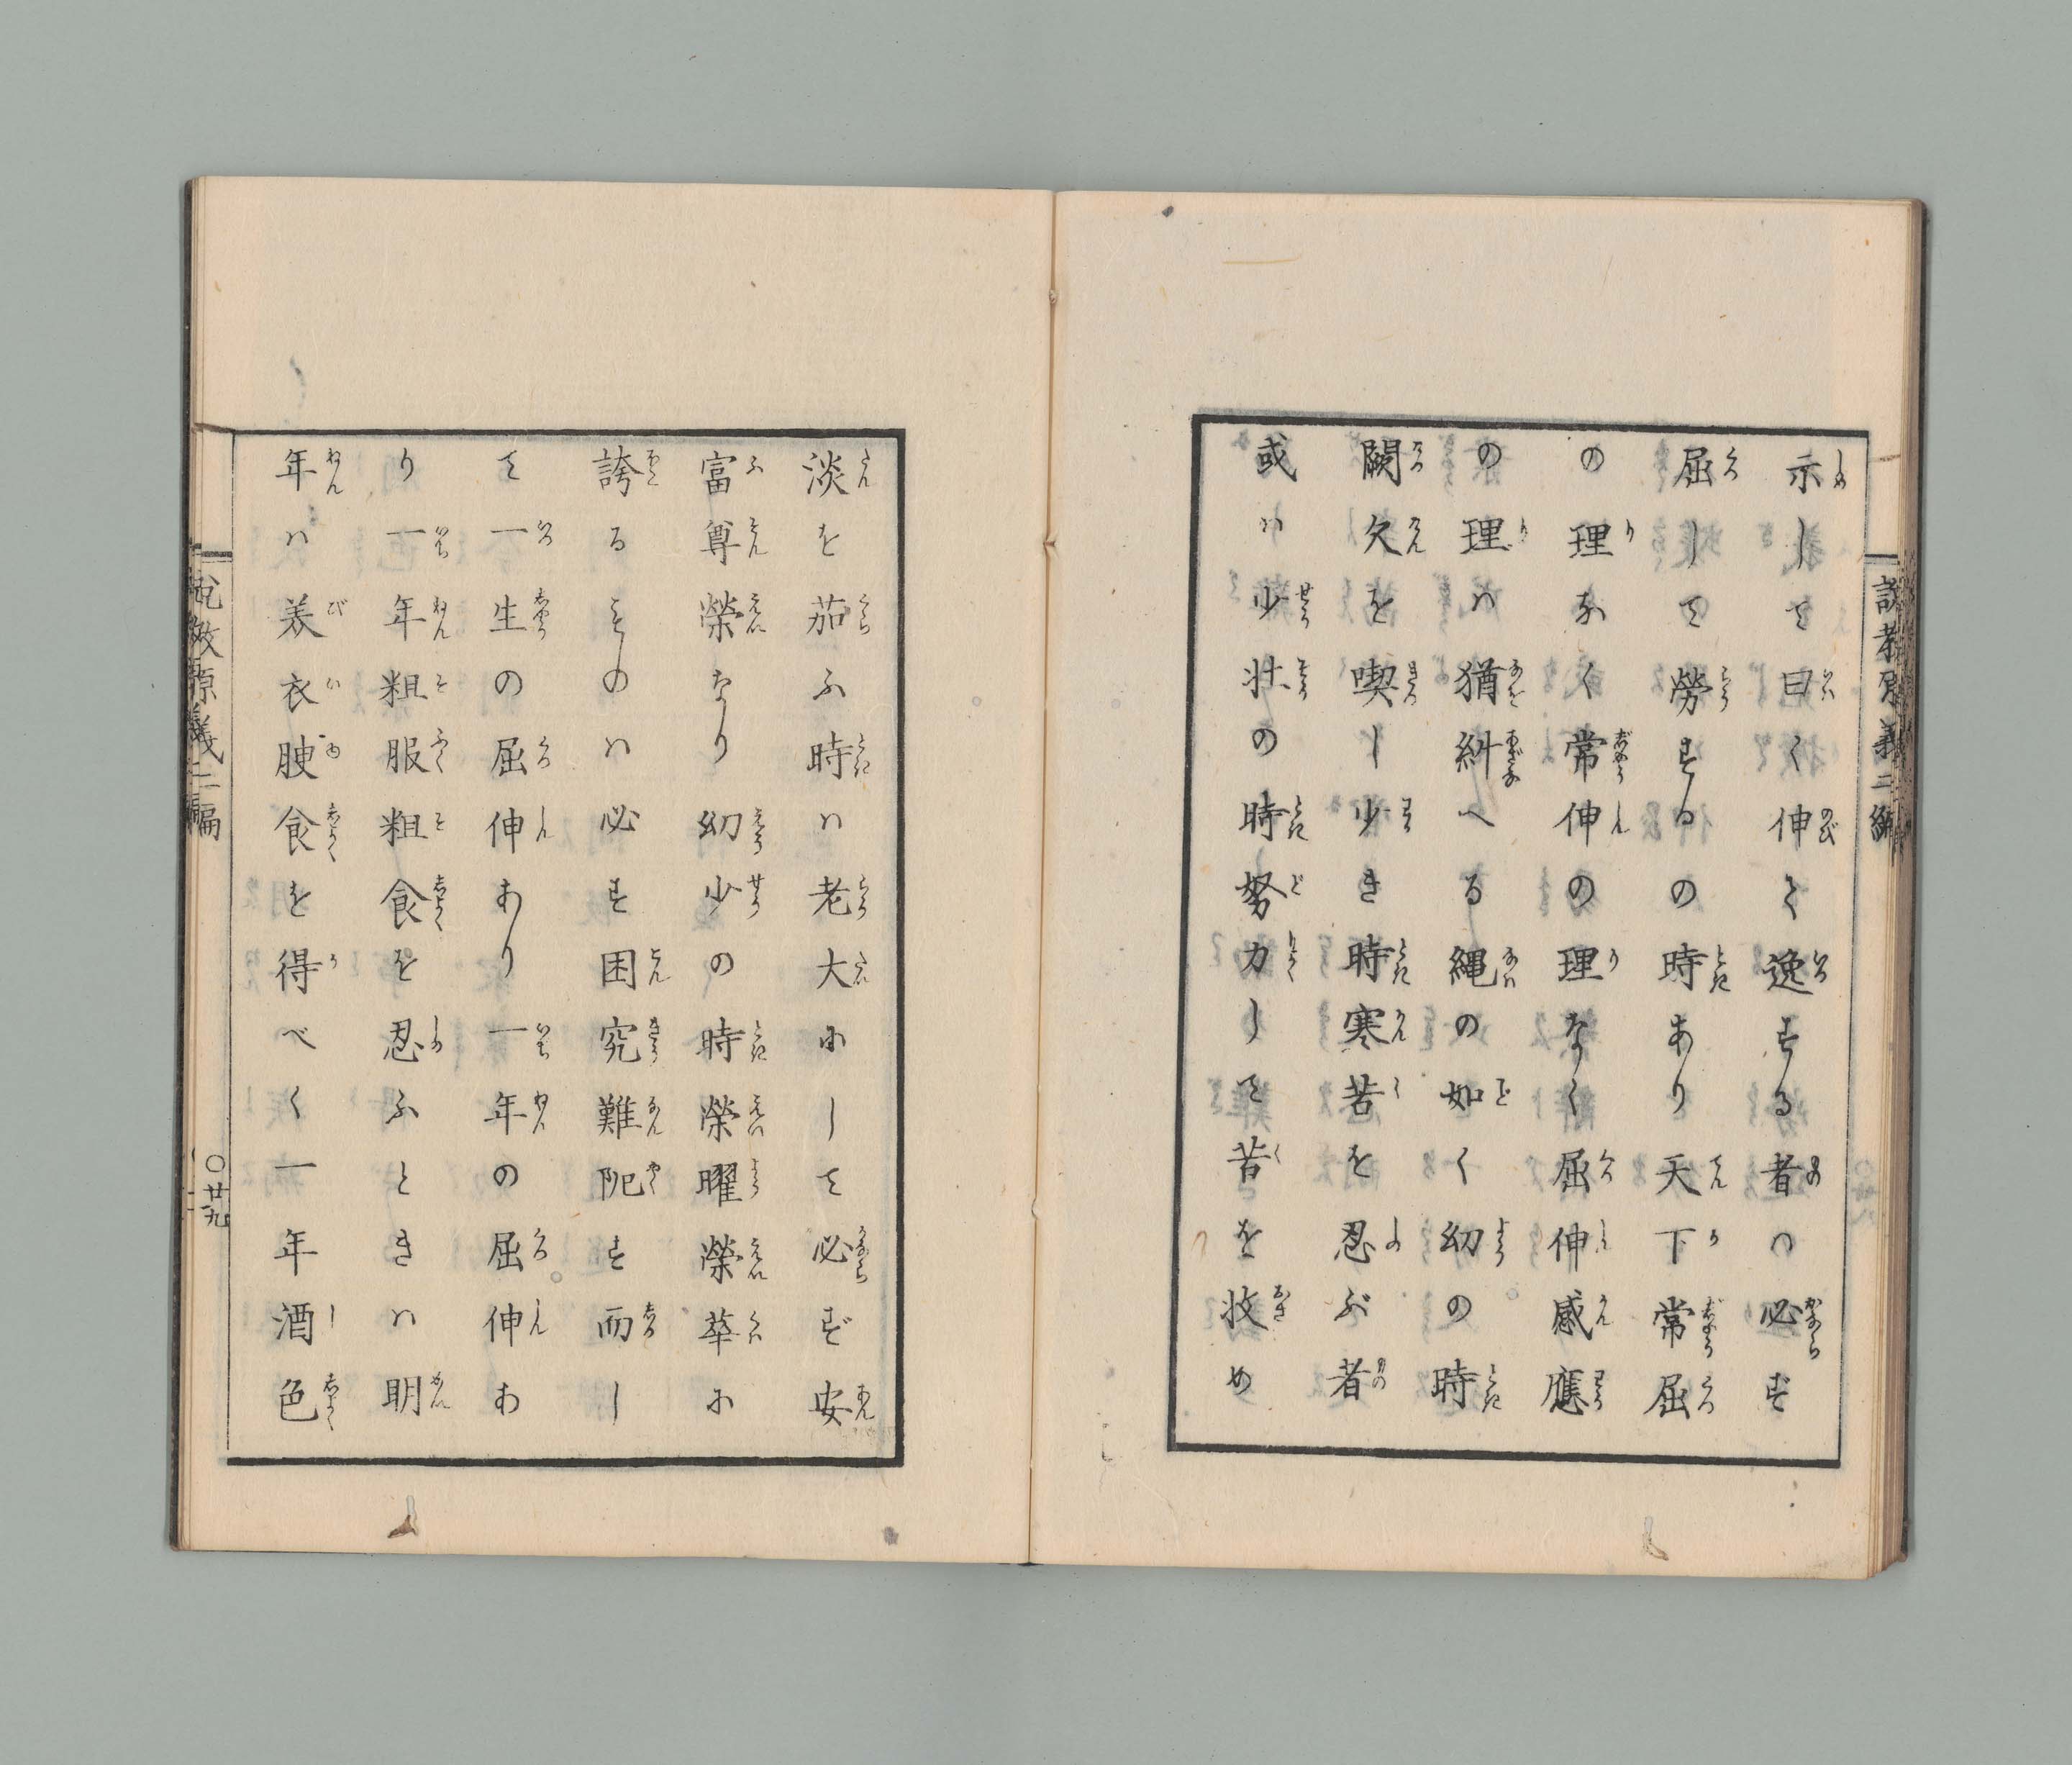 説教原義二編
示して曰く伸て逸する者ハ必ず
屈して勞するの時あり天下常屈
の理なく常伸の理なく屈伸感應
の理ハ猶糾へる縄の如く幼の時
闕欠を喫し少き時寒苦を忍ぶ者
或ハ少壮の時努力して苦を收め
淡を茹ふ時ハ老大にして必ず安
富尊榮なり幼少の時榮曜榮華に
誇るものハ必す困究難阨す而し
て一生の屈伸あり一年の屈伸あ
り一年粗服粗食を忍ふときハ明
年ハ美衣腴食を得べく一年酒色
説教原義二編
〇廿九